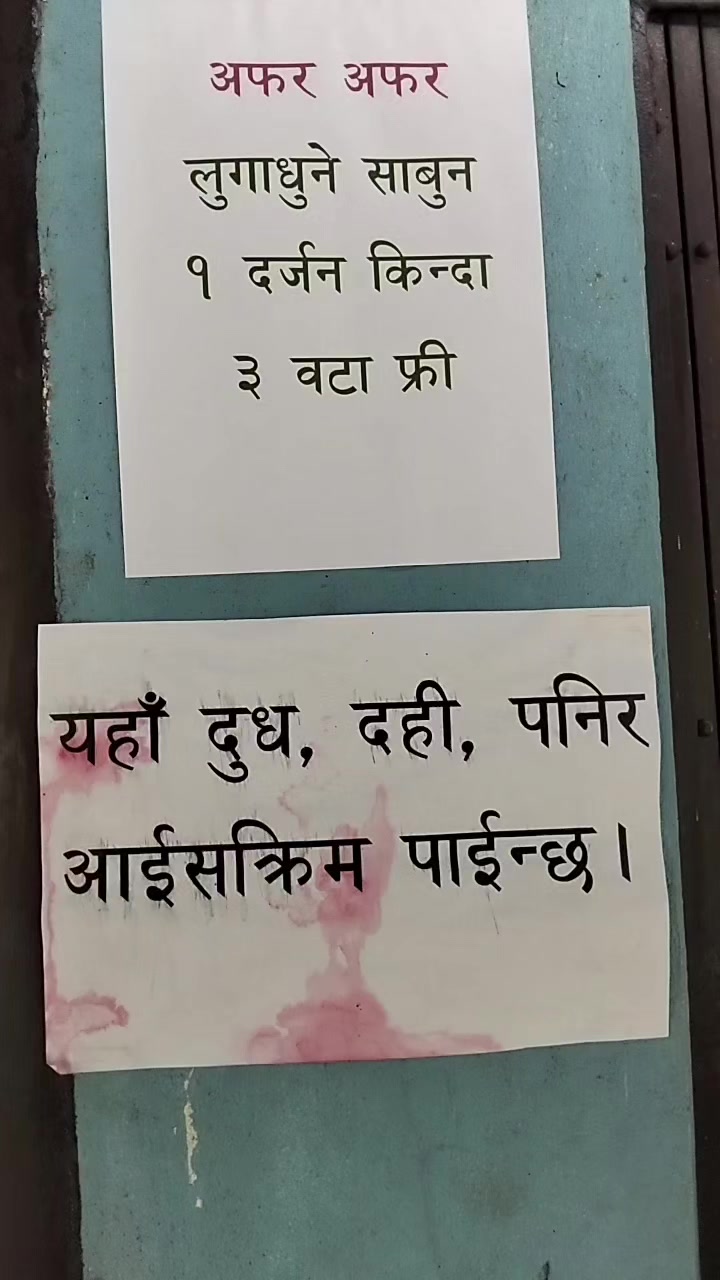 अफर अफर
लुगाधुने साबुन
१ दर्जन किन्दा
३ वटा फ्री
यहाँ दुध, दही, पनिर
आईसक्रिम पाईन्छ।